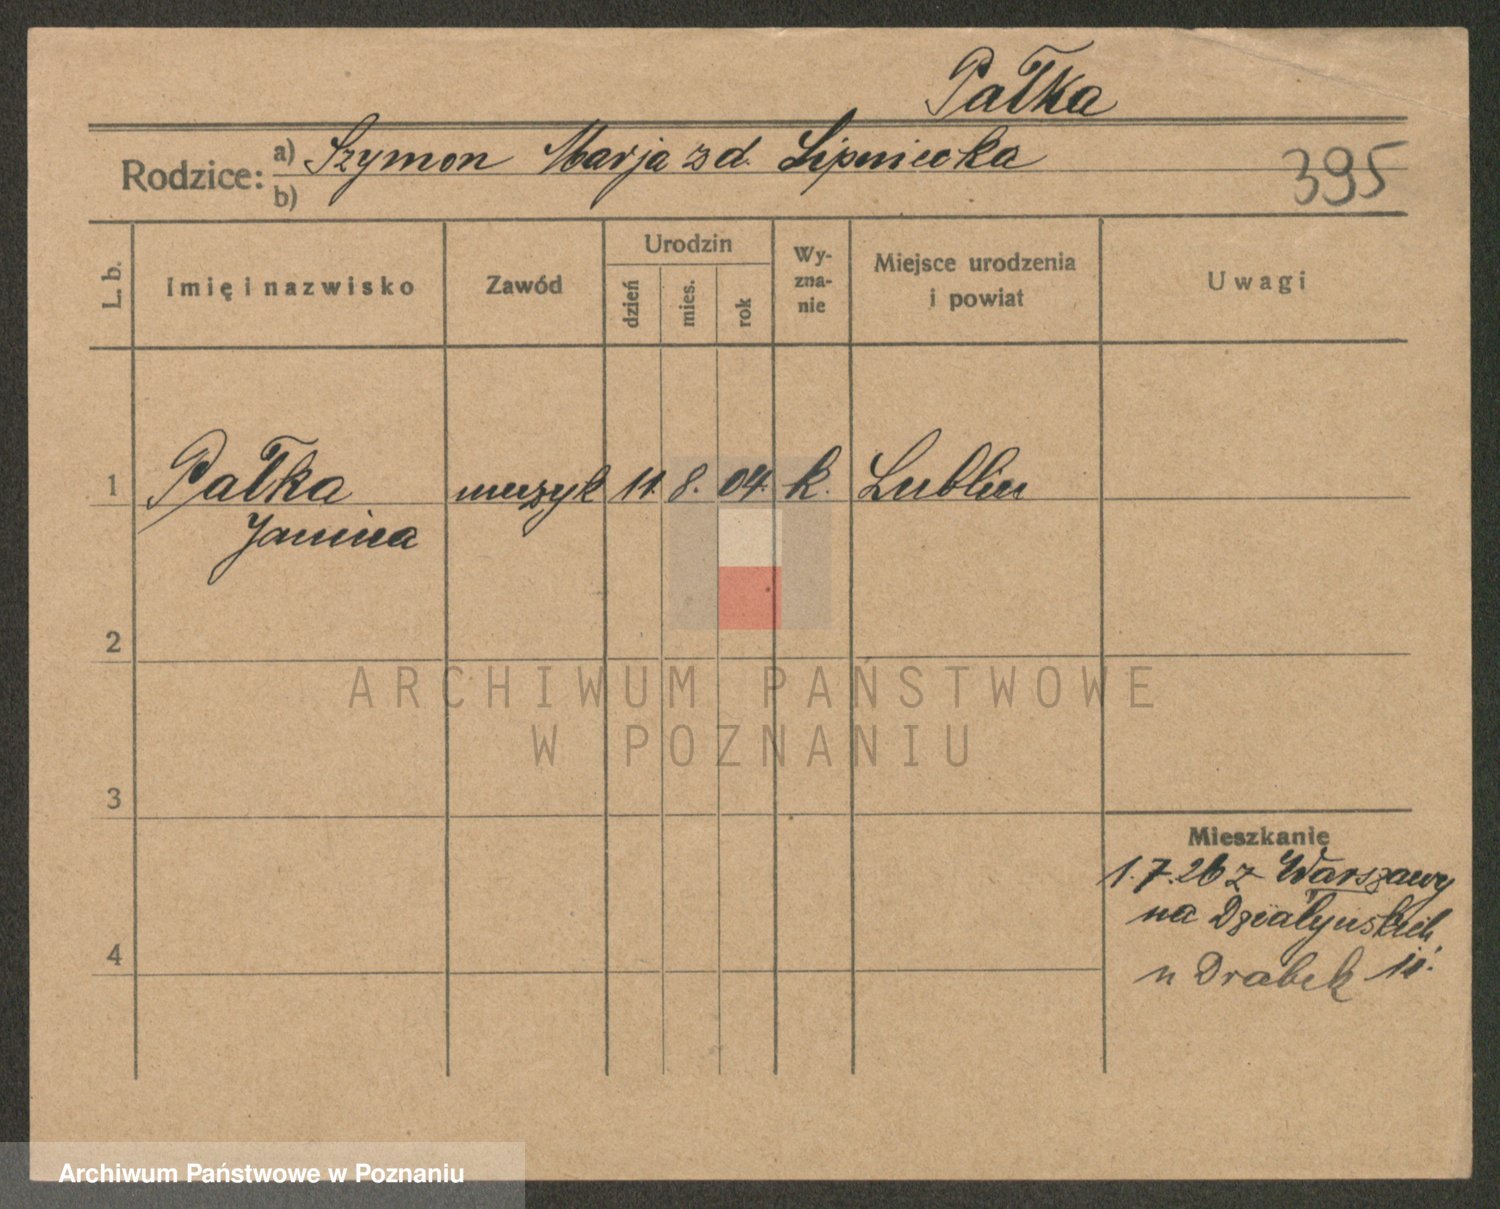 Pałka
Rodzice: a) Szymon Marja zd. Lipniecka
b)
395
L. b.
Imię i nazwisko
Zawód
Urodzin
dzień
mies.
rok
Wy-
zna-
nie
Miejsce urodzenia
i powiat
Uwagi
1 Pałka muzyk 11. 8. 04. k. Lublin
Janina
2
3
4
Mieszkanie
1.7.26 z Warszawy
na Działyńskich
u Drabek
ARCHIWUM PAŃSTWOWE
W POZNANIU
Archiwum Państwowe w Poznaniu